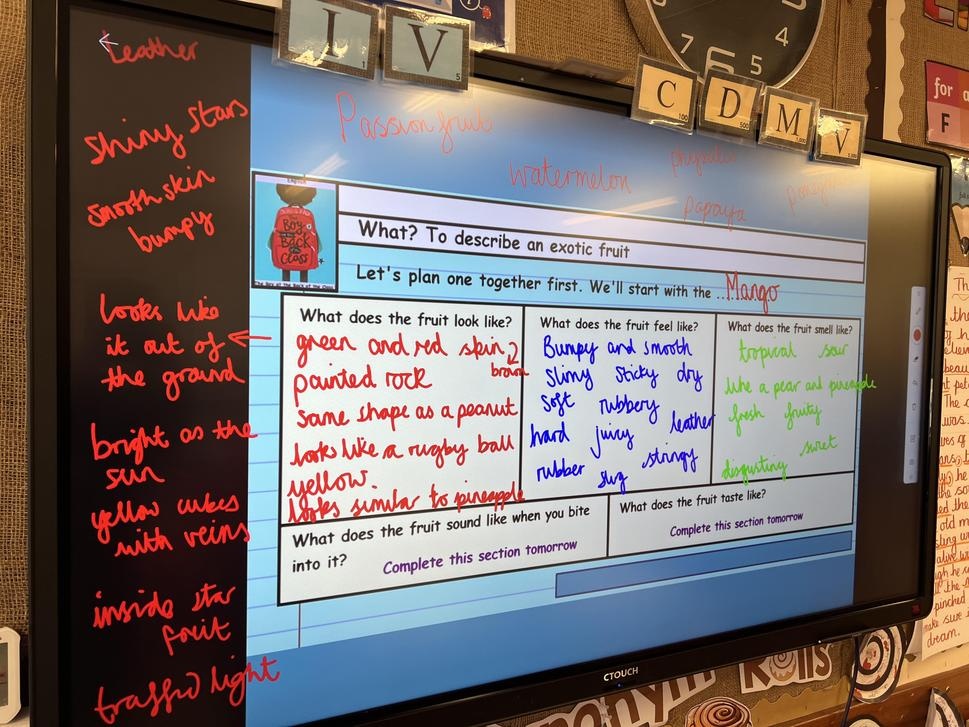 I
1
V
5
C
100
D
500
M
1,000
V
7
6
5
4
for a
F
leather
shiny stars
smooth skin
bumpy
looks like
it out of
the ground
bright as the
sun
yellow cubes
with veins
inside star
fruit
traffic light
Passion fruit
watermelon
physalis
papaya
English
The
Boy
at the
Back
of the
Class
The Boy at the Back of the Class
What? To describe an exotic fruit
Let's plan one together first. We'll start with the ... Mango
What does the fruit look like?
green and red skin
brown
painted rock
same shape as a peanut
looks like a rugby ball
yellow.
looks similar to pineapple
What does the fruit feel like?
Bumpy and smooth
Slimy sticky dry
soft rubbery
hard juicy leather
rubber slug stringy
What does the fruit smell like?
tropical sour
like a pear and pineapple
fresh fruity
sweet
disgusting
What does the fruit sound like when you bite
into it? Complete this section tomorrow
What does the fruit taste like?
Complete this section tomorrow
CTOUCH
Rolls
pinched
make sure
dream.